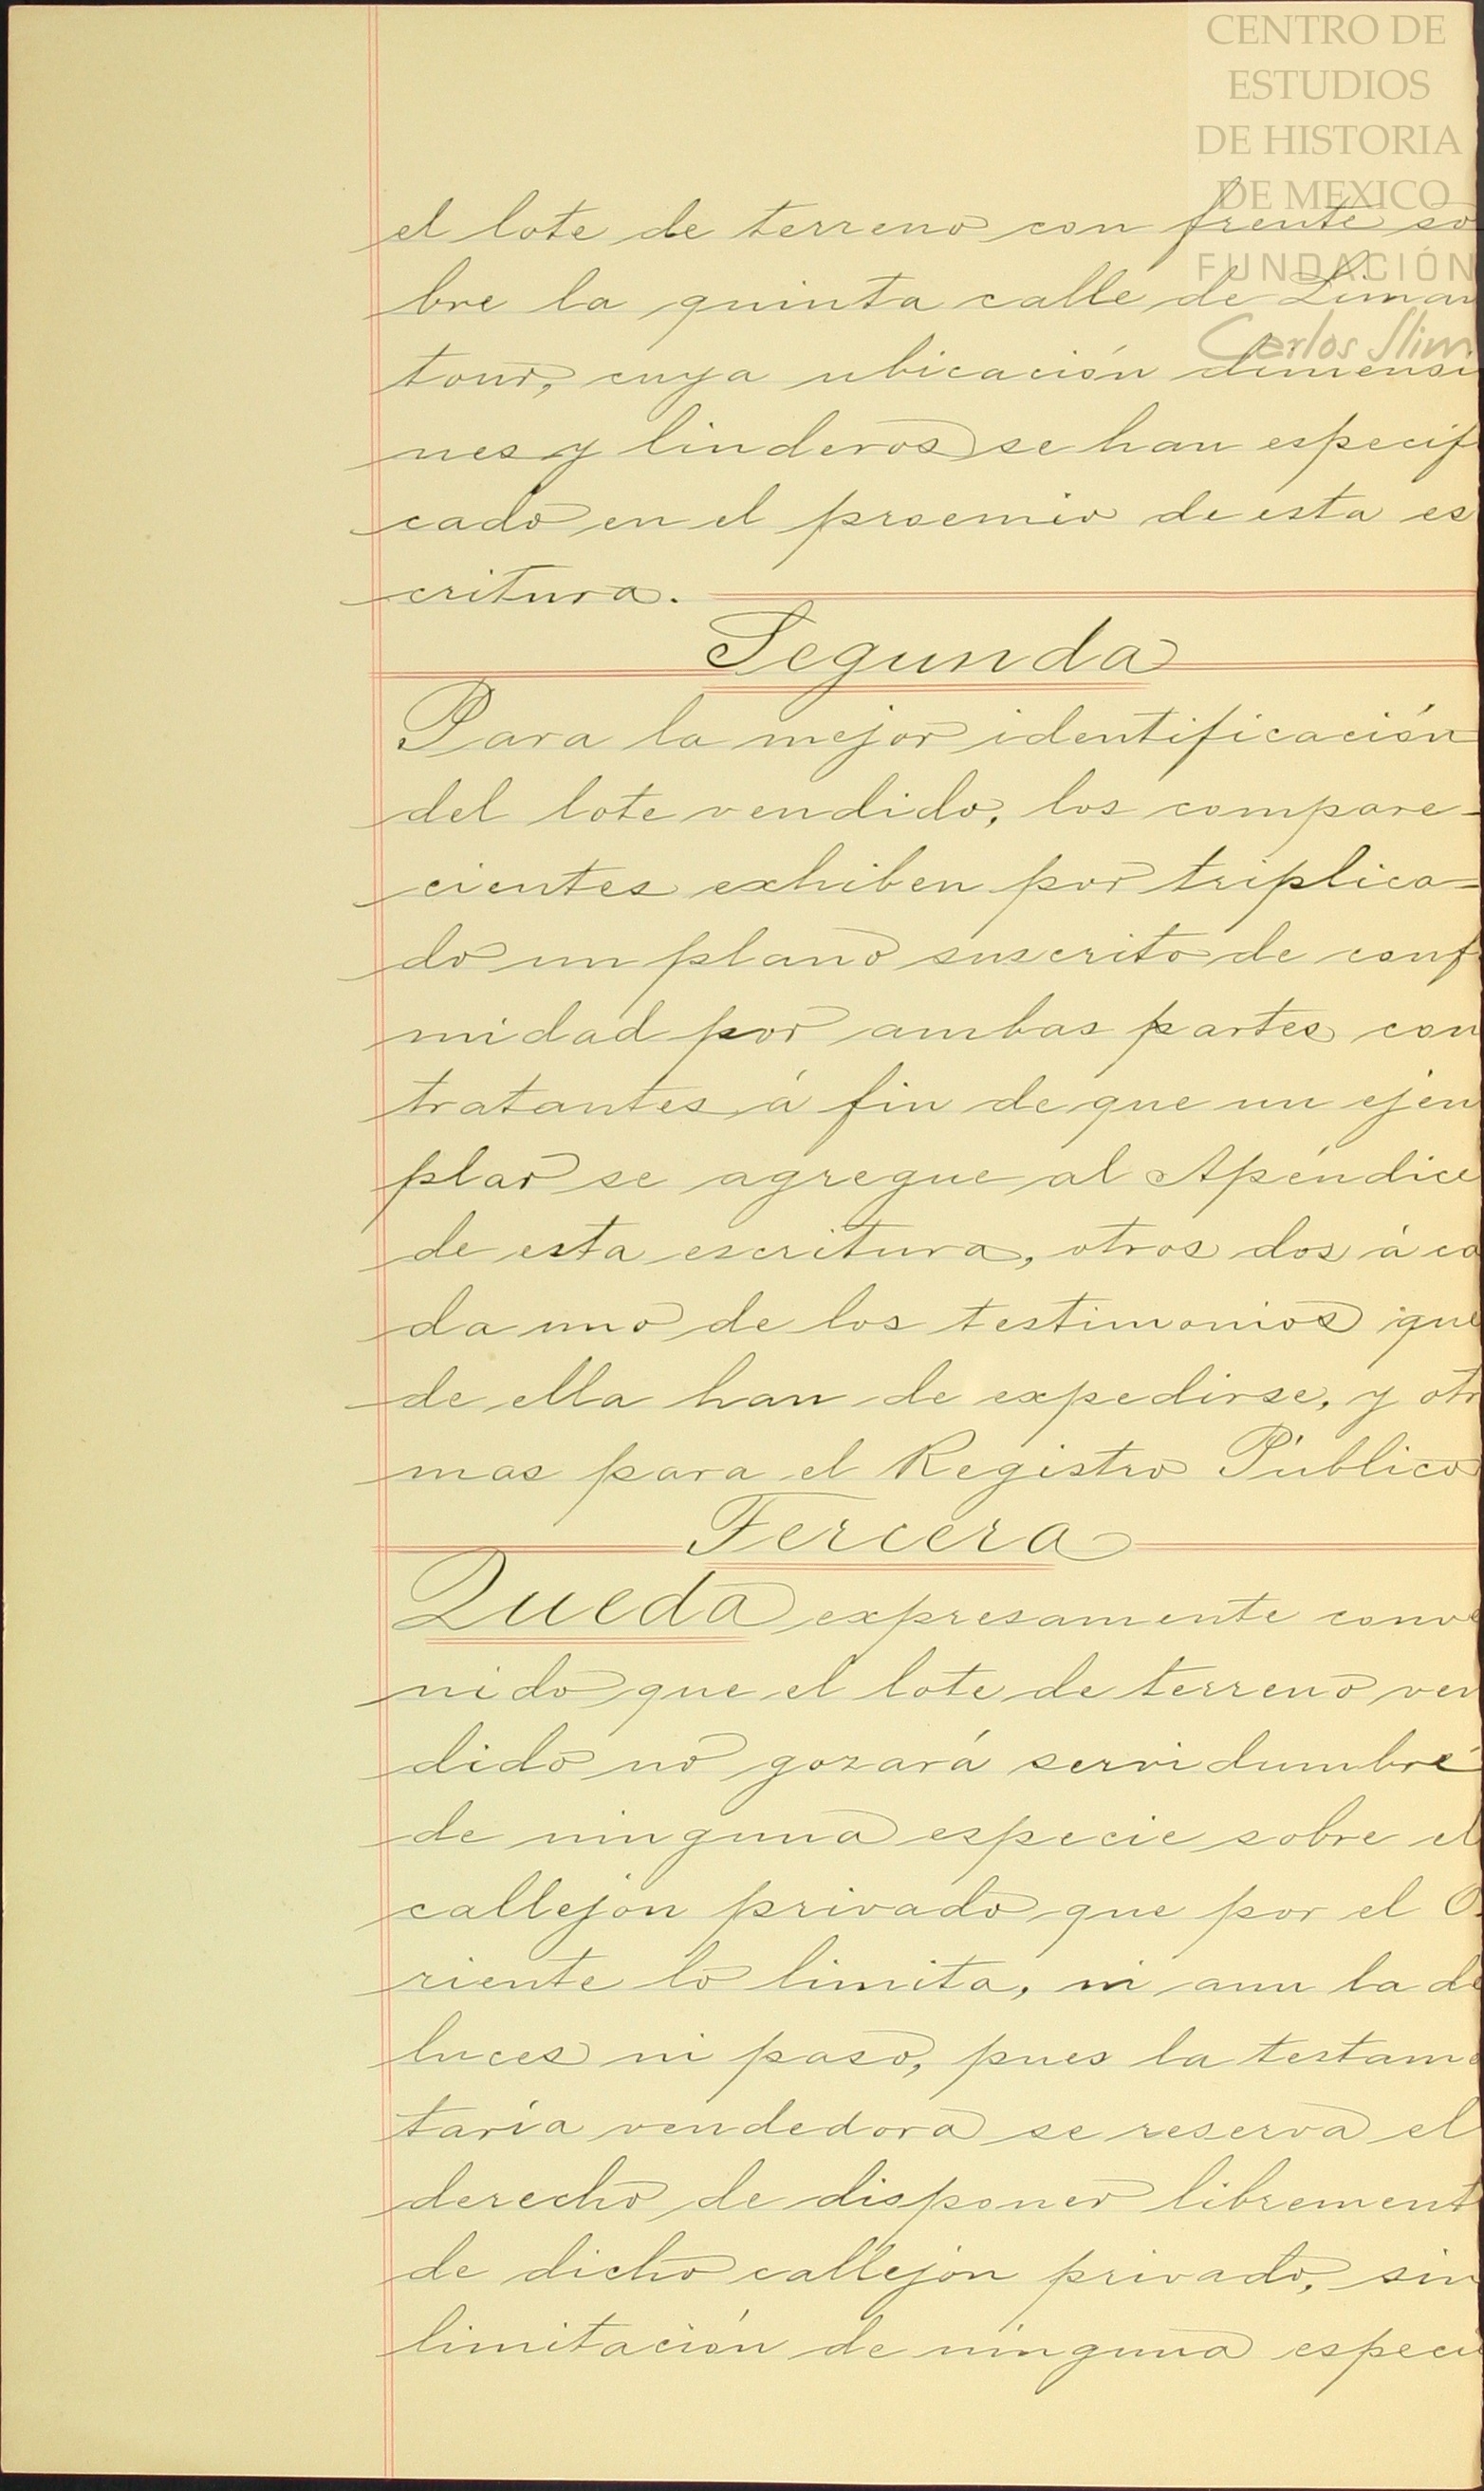 CENTRO DE
ESTUDIOS
DE HISTORIA
DE MEXICO
FUNDACIÓN
Carlos Slim
el lote de terreno con frente so
bre la quinta calle de Liman
tour, cuya ubicación dimensi
nes y linderos se han especif
cado en el proemio de esta es
critura.
Segunda
Para la mejor identificación
del lote vendido, los compare-
cientes exhiben por triplica-
do un plano suscrito de conf
midad por ambas partes con
tratantes á fin de que un ejem
plar se agregue al Apéndice
de esta escritura, otros dos á ca
da uno de los testimonios que
de ella han de expedirse, y otr
mas para el Registro Público
Tercera
Queda expresamente conve
nido que el lote de terreno ven
dido no gozará servidumbre
de ninguna especie sobre el
callejon privado que por el O.
riente lo limita, ni aun la de
luces ni paso, pues la testame
taría vendedora se reserva el
derecho de disponer librement
de dicho callejón privado, sin
limitación de ninguna especi